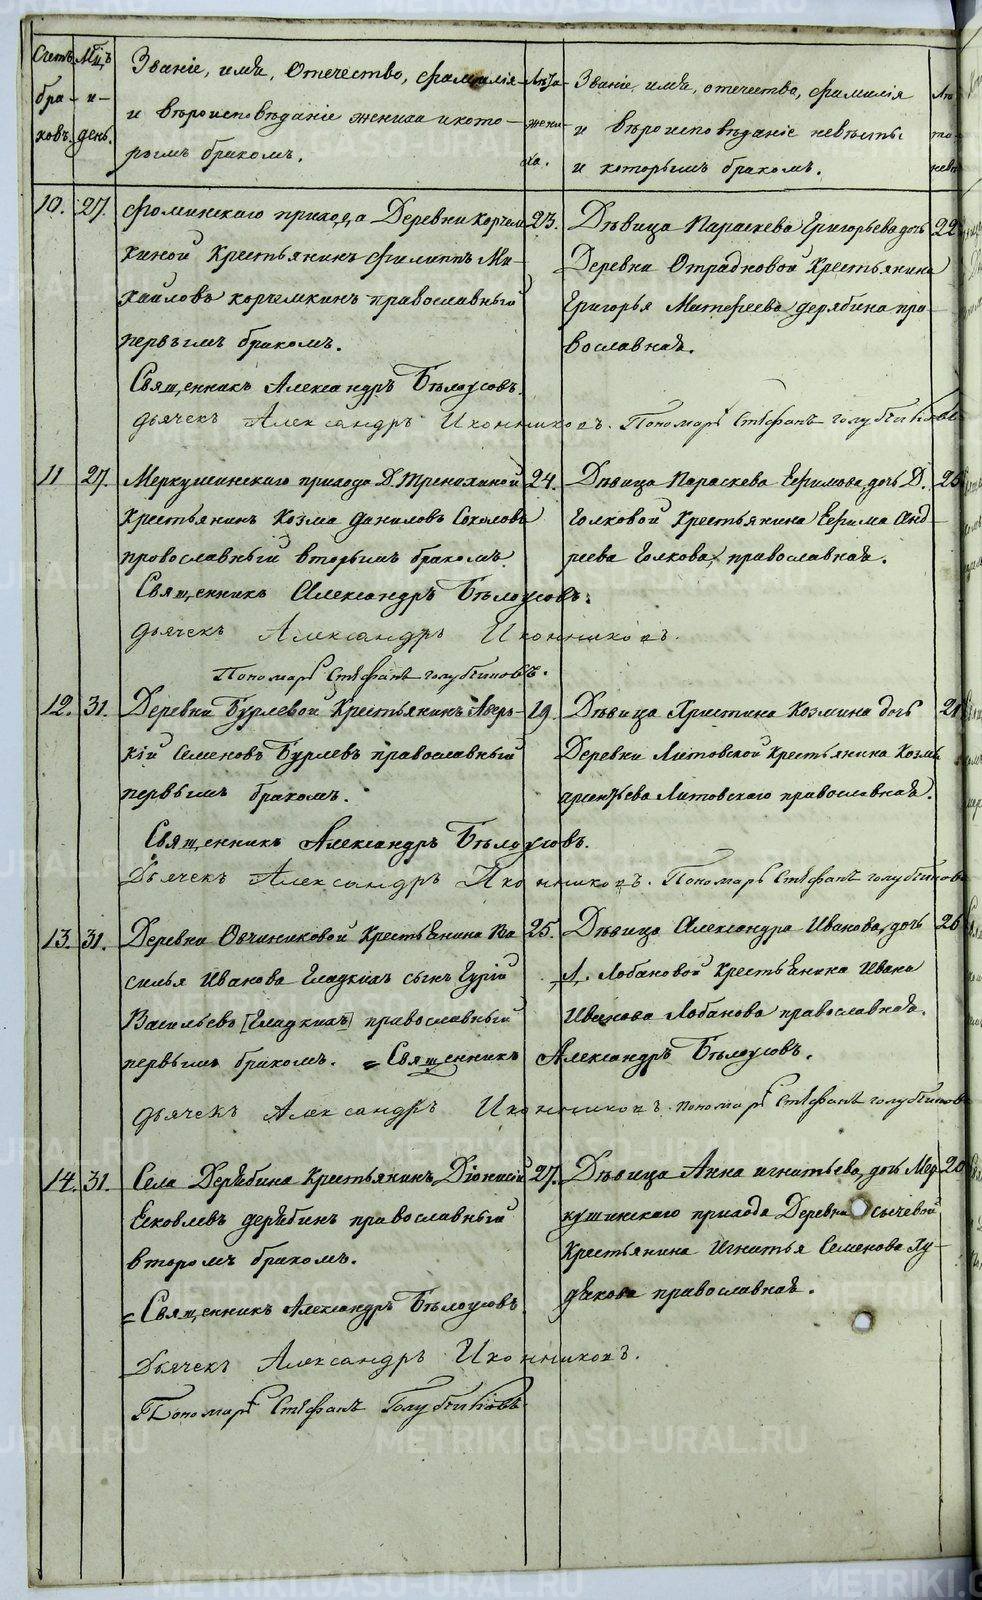 Счетъ бра- ковъ.
Мѣц.ъ и день.
Званіе, имя, отечество, фамилія
и вѣроисповѣданіе жениха и кото-
рымъ бракомъ.
Лѣта жени- ха.
Званіе, имя, отечества, фамилія
и вѣроисповѣданіе невѣсты
и которымъ бракомъ.
10. 27. Фоминскаго прихода Деревни Корчем
киной Крестьянинъ Филиппъ Ми-
хаиловъ Корчемкинъ православный
первымъ бракомъ.
23.
Дѣвица Параскева Григорьева дочь
Деревни Отрадновой Крестьянина
Григорья Матфеева дерябина пра-
вославная.
22
Священникъ Александръ Бѣлоусовъ.
дьячекъ Александръ Иконниковъ. Пономарь Стефанъ голубчиковъ
11 27. Меркушинскаго прихода Д. Тренихиной
Крестьянинъ Козма Даниловъ Соколовъ
провославный вторымъ бракомъ.
24.
Дѣвица Параскева Ефимова дочь Д.
Голковой Крестьянина Ефима Анд-
реева Голкова, православная.
Священникъ Александръ Бѣлоусовъ.
дьячекъ Александръ Иконниковъ.
Пономарь Стефанъ голубчиковъ.
12. 31. Деревни Бурлевой Крестьянинъ Авер-
кій Семеновъ Бурлевъ православный
первымъ бракомъ.
19.
Дѣвица Христина Козмина дочь
Деревни Литовской Крестьянина Козмы
Арентьева Литовскаго православная.
21
Священникъ Александръ Бѣлоусовъ.
Дьячекъ Александръ Иконниковъ. Пономарь Стефанъ голубчиковъ
13. 31. Деревни Овчиниковой Крестьянина Ва
силья Иванова Гладкихъ сынъ Гурій
Васильевъ [Гладкихъ] православный
первымъ бракомъ. = Священникъ Александръ Бѣлоусовъ.
25.
Дѣвица Александра Иванова дочь
Д. Лобановой Крестьянина Ивана
Иванова Лобанова православная.
26
дьячекъ Александръ Иконниковъ. пономарь Стефанъ голубчиковъ
14. 31. Села Дерябина Крестьянинъ Діонисій
Есковлевъ дерябинъ православный
второмъ бракомъ.
27.
Дѣвица Анна игнатьева дочь Мер
кушинскаго прихода Деревни сычевой
Крестьянина Игнатья Семенова Ху-
дякова православная.
20
= Священникъ Александръ Бѣлоусовъ
Дьячекъ Александръ Иконниковъ.
Пономарь Стефанъ Голубчиковъ
METRIKI.GASO-URAL.RU